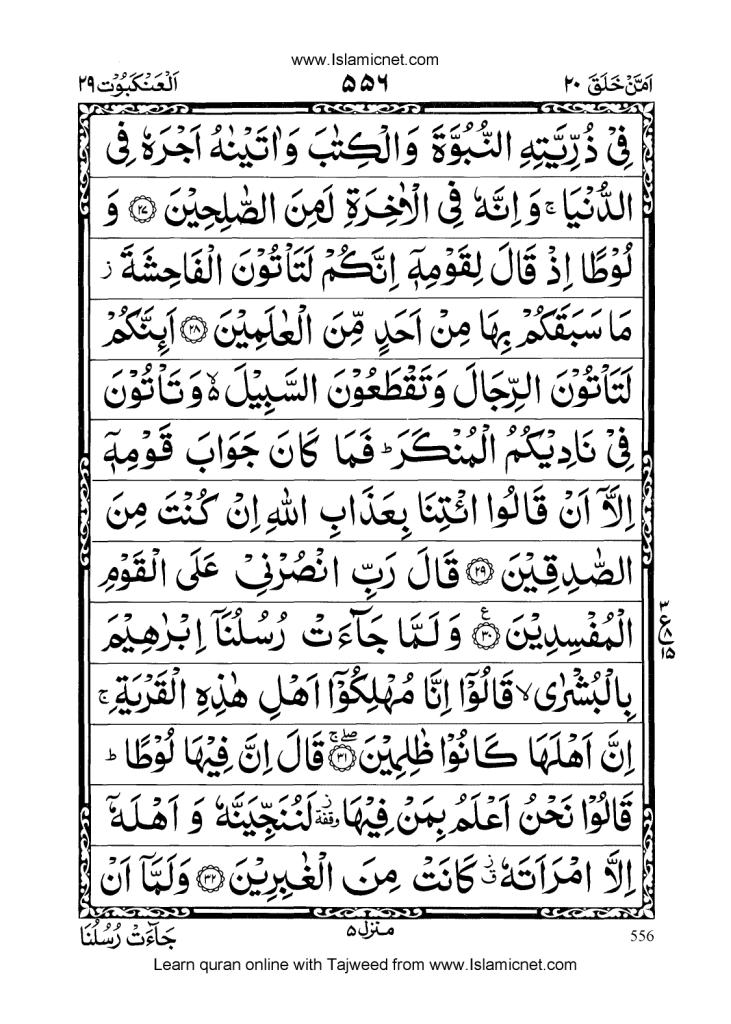 www.Islamicnet.com
اَمَّنۡ خَلَقَ ۲۰ ۵۵۶ اَلۡعَنۡكَبُوۡت ۲۹
فِىۡ ذُرِّيَّتِهِ النُّبُوَّةَ وَالۡكِتٰبَ وَاٰتَيۡنٰهُ اَجۡرَهٗ فِى
الدُّنۡيَا ۚ وَاِنَّهٗ فِى الۡاٰخِرَةِ لَمِنَ الصّٰلِحِيۡنَ ﴿۲۷﴾ وَ
لُوۡطًا اِذۡ قَالَ لِقَوۡمِهٖۤ اِنَّكُمۡ لَتَاۡتُوۡنَ الۡفَاحِشَةَ ز
مَا سَبَقَكُمۡ بِهَا مِنۡ اَحَدٍ مِّنَ الۡعٰلَمِيۡنَ ﴿۲۸﴾ اَٮِٕنَّكُمۡ
لَتَاۡتُوۡنَ الرِّجَالَ وَتَقۡطَعُوۡنَ السَّبِيۡلَ ۙ۬ وَتَاۡتُوۡنَ
فِىۡ نَادِيۡكُمُ الۡمُنۡكَرَ ؕ فَمَا كَانَ جَوَابَ قَوۡمِهٖۤ
اِلَّاۤ اَنۡ قَالُوا ائۡتِنَا بِعَذَابِ اللّٰهِ اِنۡ كُنۡتَ مِنَ
الصّٰدِقِيۡنَ ﴿۲۹﴾ قَالَ رَبِّ انۡصُرۡنِىۡ عَلَى الۡقَوۡمِ
الۡمُفۡسِدِيۡنَ ﴿۳۰﴾ ع وَلَمَّا جَآءَتۡ رُسُلُنَاۤ اِبۡرٰهِيۡمَ
۳
ع ۸
۱۵
بِالۡبُشۡرٰى ۙ قَالُوۡۤا اِنَّا مُهۡلِكُوۡۤا اَهۡلِ هٰذِهِ الۡقَرۡيَةِ ۚ
اِنَّ اَهۡلَهَا كَانُوۡا ظٰلِمِيۡنَ ﴿۳۱﴾ ۖۚ قَالَ اِنَّ فِيۡهَا لُوۡطًا ؕ
قَالُوۡا نَحۡنُ اَعۡلَمُ بِمَنۡ فِيۡهَا ز وقفة لَنُنَجِّيَنَّهٗ وَ اَهۡلَهٗۤ
اِلَّا امۡرَاَتَهٗ ق ز كَانَتۡ مِنَ الۡغٰبِرِيۡنَ ﴿۳۲﴾ وَلَمَّاۤ اَنۡ
جَآءَتۡ رُسُلُنَا منزل ۵ 556
Learn quran online with Tajweed from www.Islamicnet.com